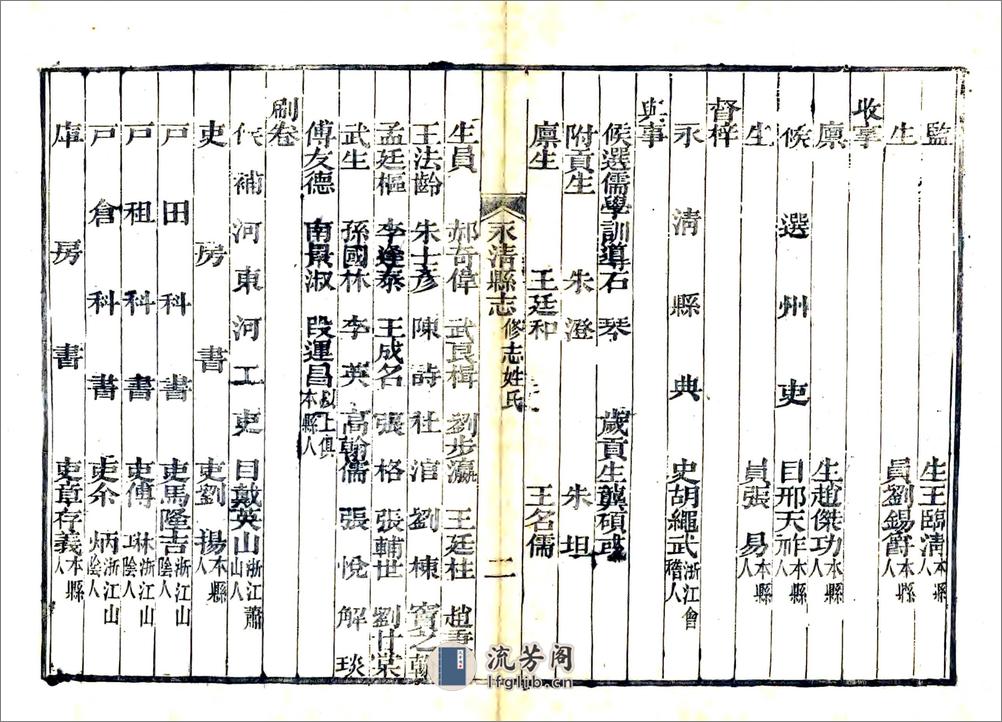 監生王臨清本縣人
生員劉錫爵本縣人
收掌
廪生趙傑功本縣人
候選州吏目邢天祚本縣人
生員張易本縣人
督梓
永清縣典史胡繩武浙江會稽人
與事
候選儒學訓導石琴 歲貢生龔碩彧
附貢生 朱澄 朱坦
廪生 王廷和 王名儒
永清縣志 修志姓氏 二
生員 郝奇偉 武良楫 劉步瀛 王廷柱
王法齡 朱士彥 陳詩 杜涫 劉棟
孟廷樞 李逢泰 王成名 張格 張輔世 劉甘棠
武生 孫國林 李英 高翰儒 張悅 解琰
傅友德 南景淑 段運昌以上俱本縣人
刷卷
候補河東河工吏目戴英山浙江蕭山人
吏房書吏劉揚本縣人
戸田科書吏馬隆吉浙江山陰人
戸租科書吏傅琳浙江山陰人
戸倉科書吏余炳浙江山陰人
庫房書吏章存義本縣人
流芳阁
lfglib.cn